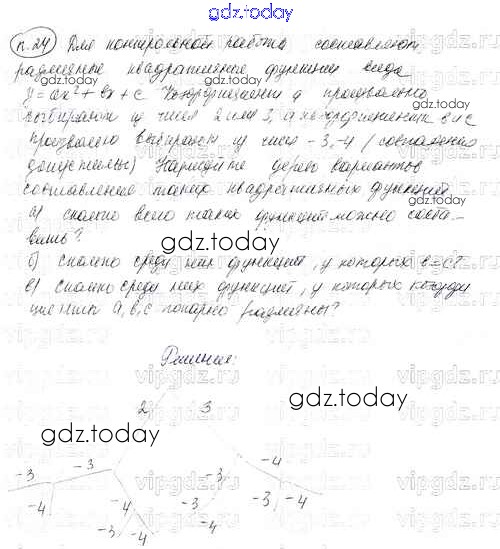 gdz.today
п.24 Для контрольной работы составляют
различные квадратичные функции вида
y = ax² + bx + c Коэффициент a произвольно
gdz.today
выбирают из чисел 2 или 3, а коэффициенты в и с
произвольно выбирают из чисел -3, -4 (совпадения
допустимы) Нарисуйте дерево вариантов
составление таких квадратичных функций
gdz.today
а) сколько всего таких функций можно соста-
вить?
gdz.today
б) сколько среди них функций, у которых в=с?
в) сколько среди них функций, у которых коэффи
циенты a, b, c попарно различны?
Решение:
vipgdz.ru vipgdz.ru
2 3
gdz.today
gdz.today
-3 -3 -3 -4
-4 -4 -3 -3 -4
-3 -4 -4